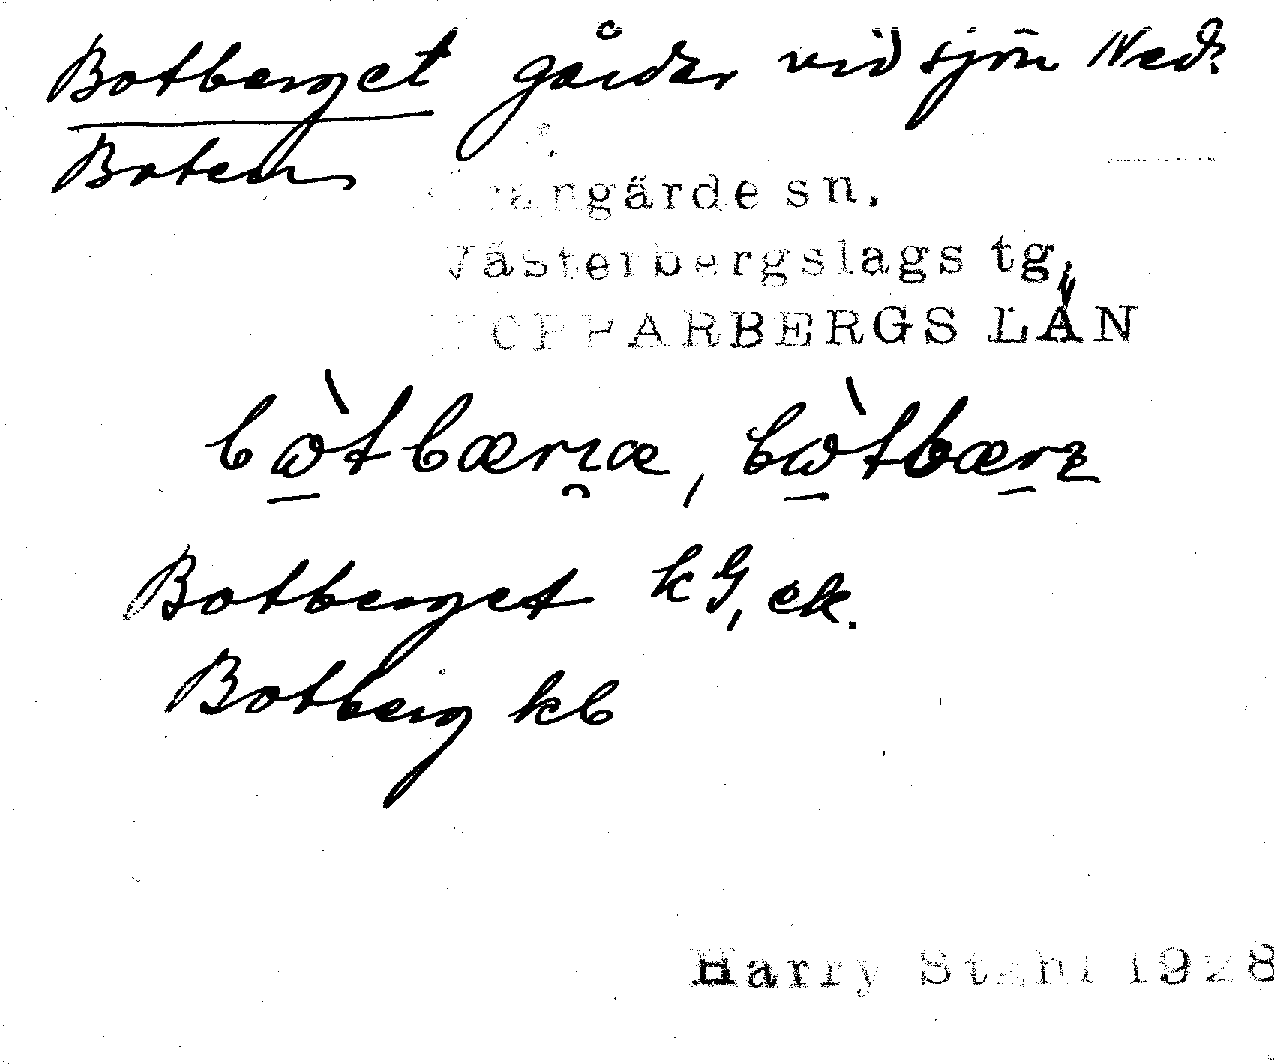 Botberget gårdar vid sjön Ned.
Boten
Grangärde sn.
Västerbergslags tg.
KOPPARBERGS LÄN
bὼtbærıæ, bὼtbærɪ
Botberget kG, ek.
Botberg kb
Harry Ståhl 1928